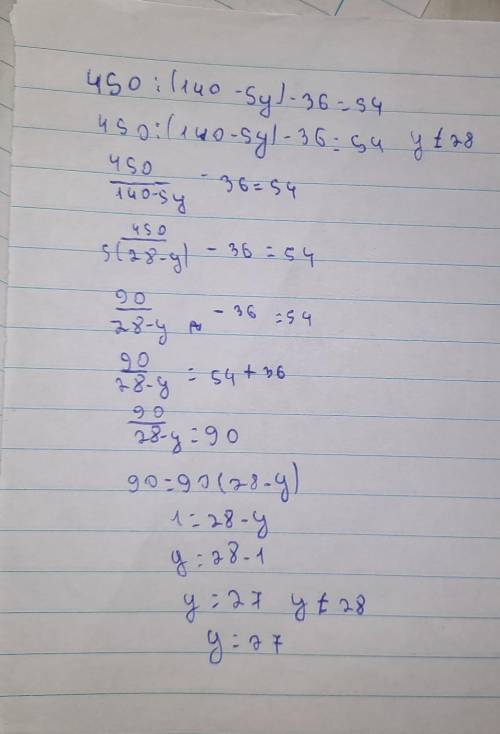 450:(140-5y)-36=54
450:(140-5y)-36=54 y≠28
450/(140-5y) -36=54
450/5(28-y) -36=54
90/(28-y) -36=54
90/(28-y) = 54+36
90/(28-y) =90
90=90(28-y)
1=28-y
y=28-1
y=27 y≠28
y=27